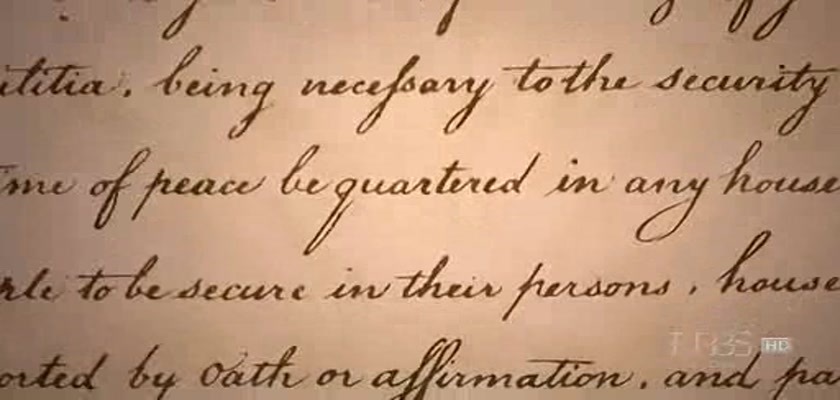 ilitia, being necessary to the security
ime of peace be quartered in any house
ple to be secure in their persons, house
orted by Oath or affirmation, and pa
PBS HD